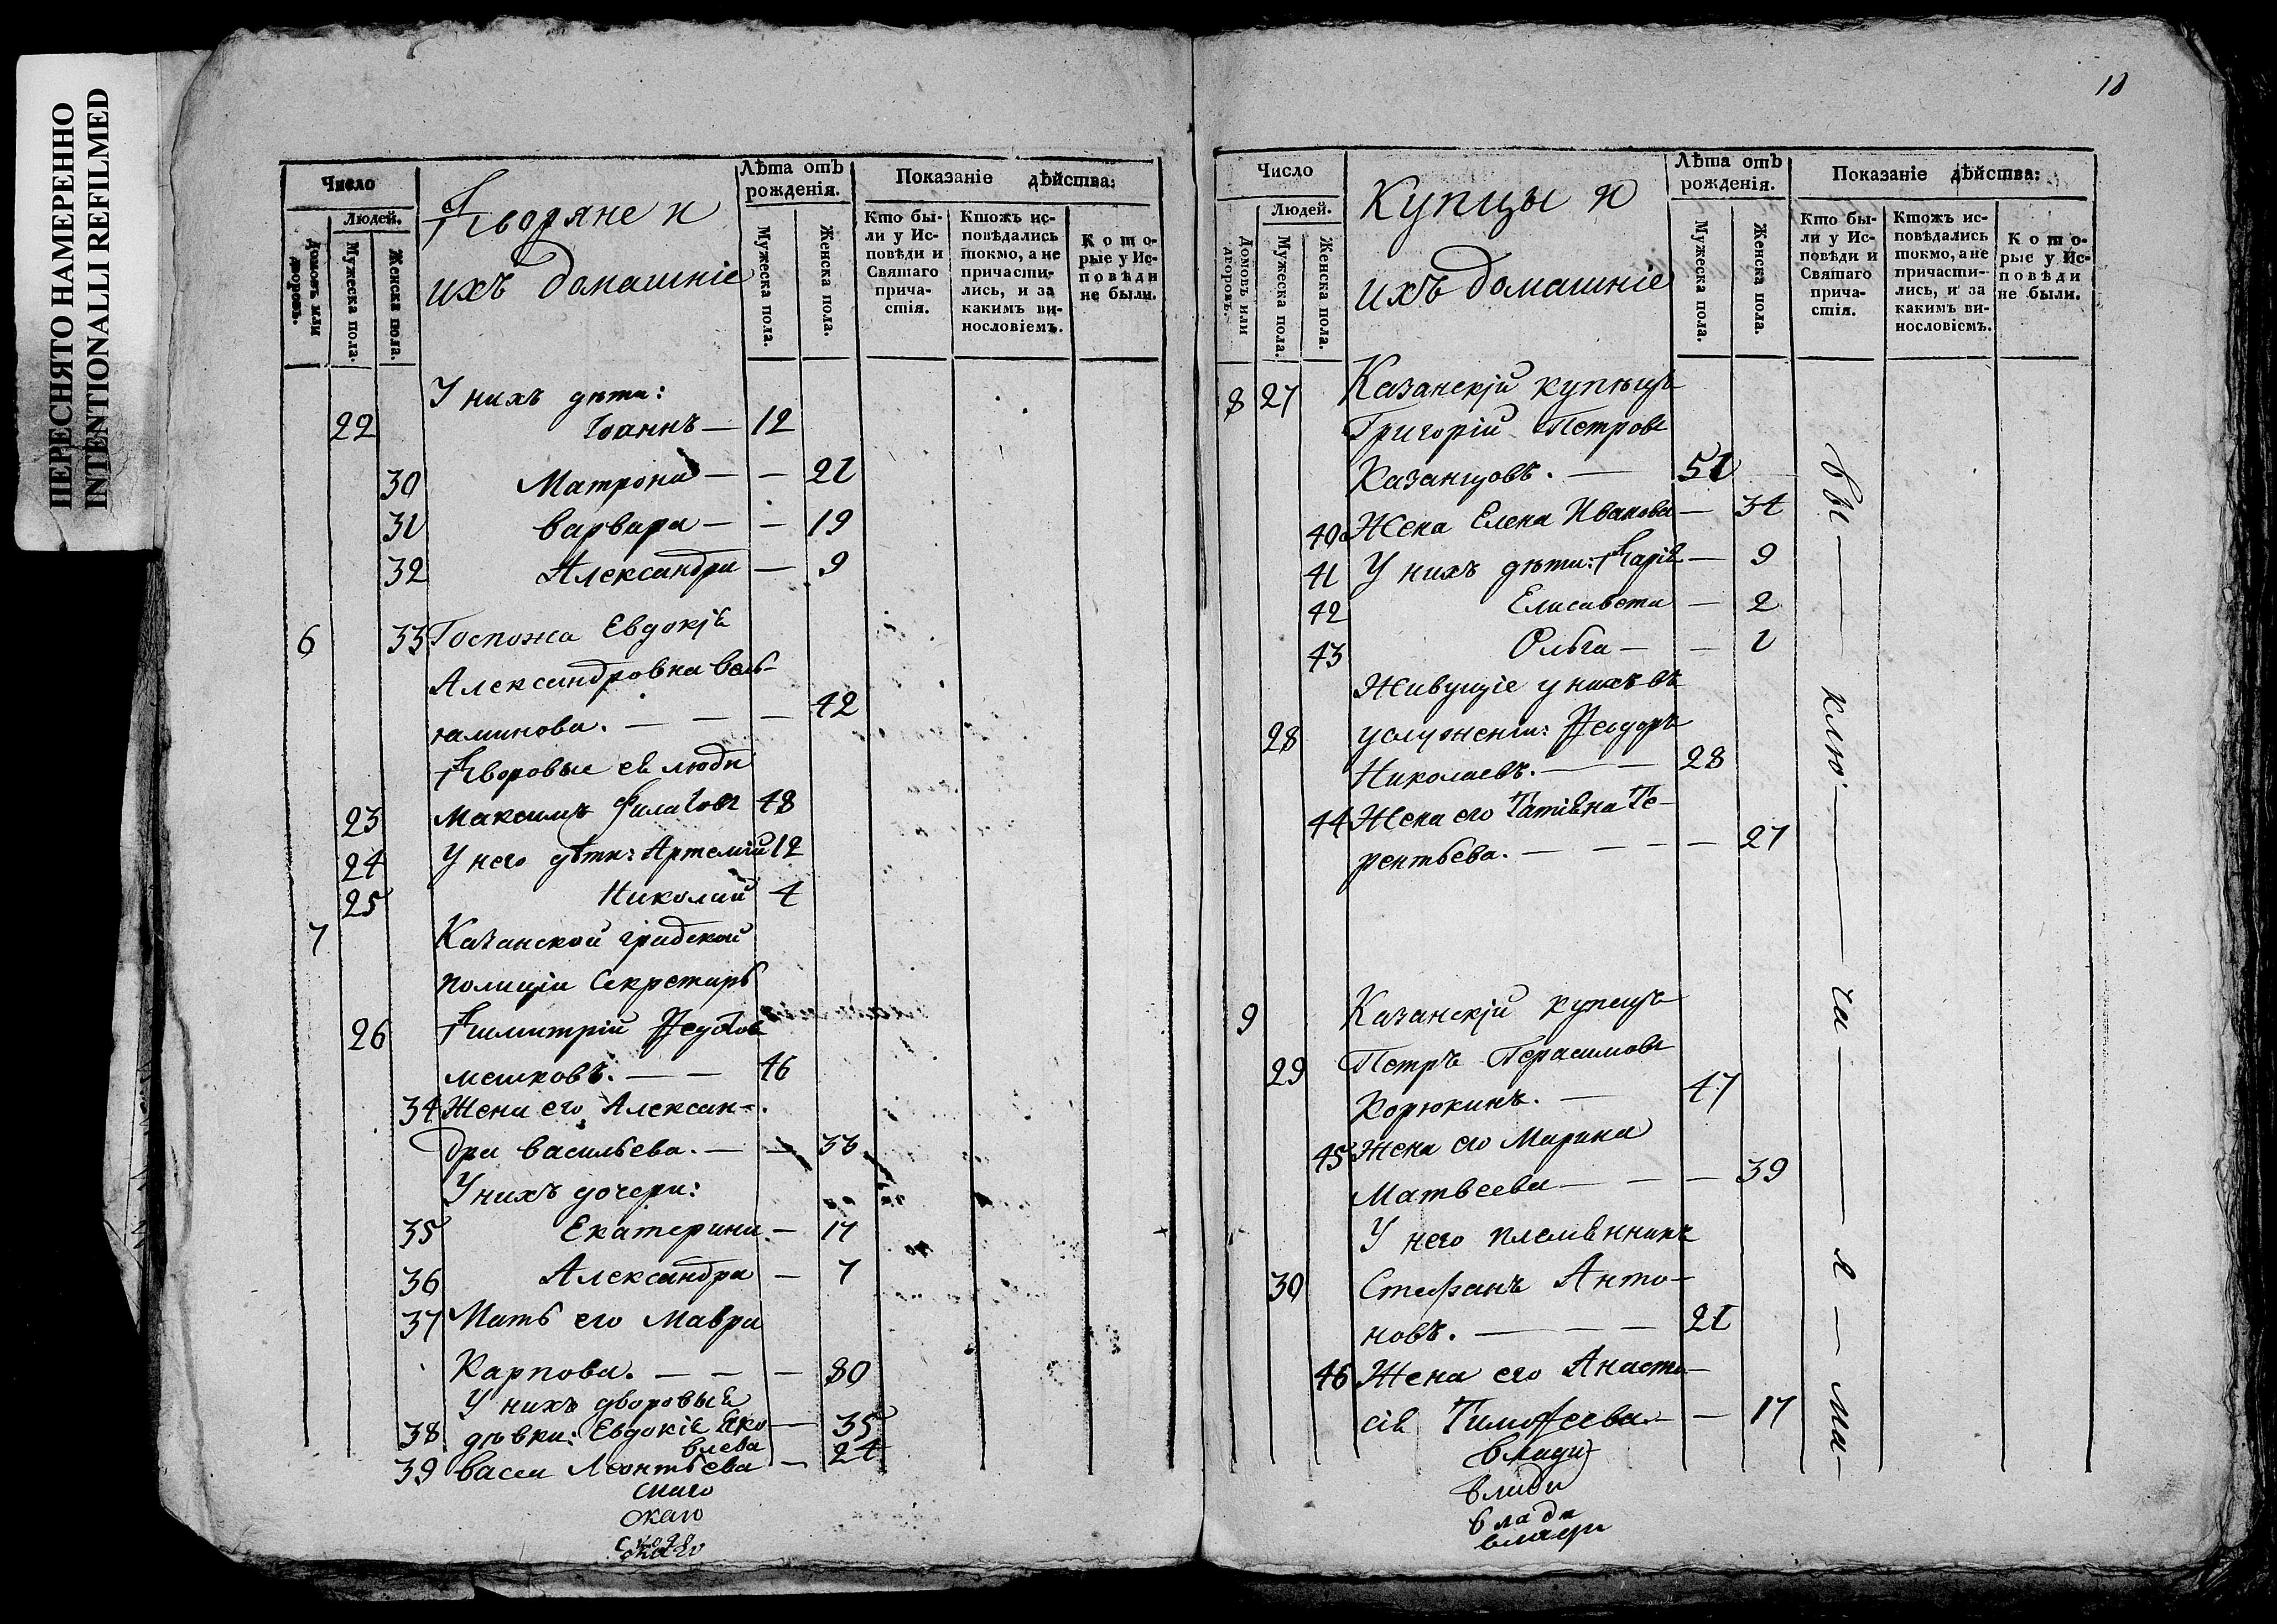 ПЕРЕСНЯТО НАМЕРЕННО
INTENTIONALLI REFILMED
Число
Людей.
Домовъ или дворовъ.
Мужеска пола.
Женска пола.
Дворяне и
ихъ домашніе
Лѣта отъ рожденія.
Мужеска пола.
Женска пола.
Показаніе дѣйства:
Кто были у Исповѣди и Святаго причастія.
Ктожъ исповѣдались токмо, а не причастились, и за какимъ винословіемъ.
Которые у Исповѣди не были.
У нихъ дѣти:
22 Іоаннъ — 12
30 Матрона — — 21
31 Варвара — — 19
32 Александра — 9
6 33 Госпожа Евдокія
Александровна Вель-
яминова. — — — 42
Дворовые ея люди
23 Максимъ Филатовъ 48
24 У него дѣти: Артемій 12
25 Николай 4
7 Казанской градской
полиціи Секретарь
26 Димитрій Ѳедотов
мешковъ. — — 46
34 Жена его Алексан-
дра Васильева. — — 33
У нихъ дочери:
35 Екатерина — 17
36 Александра — 7
37 Мать его Мавра
Карпова. — — — 80
У нихъ дворовыя
38 дѣвки: Евдокія Яко — 35
влева
39 Васса Леонтьева — 24
скаго
скаго
скаго
10
Число
Людей.
Домовъ или дворовъ.
Мужеска пола.
Женска пола.
Купцы и
ихъ домашніе
Лѣта отъ рожденія.
Мужеска пола.
Женска пола.
Показаніе дѣйства:
Кто были у Исповѣди и Святаго причастія.
Ктожъ исповѣдались токмо, а не причастились, и за какимъ винословіемъ.
Которые у Исповѣди не были.
8 27 Казанскій купецъ
Григорій Петровъ
Казанцовъ. — 51
40 Жена Елена Иванова — 34
41 У нихъ дѣти: Дарія — 9
42 Елисавета — 2
43 Ольга — — 1
Живущіе у нихъ въ
28 услуженіи: Ѳеодоръ
Николаевъ. — — 28
44 Жена его Татіяна Те-
рентьева. — — — — 27
9 Казанскій купецъ
29 Петръ Герасимовъ
Корюкинъ. — 47
45 Жена его Марина
Матвеева — — — 39
У него племянникъ
30 Стефанъ Анто-
новъ. — — — 21
46 Жена его Анаста-
сія Тимоѳеева — — 17
влади
влади
влади
влади
вы — клю — ча — я — ма —